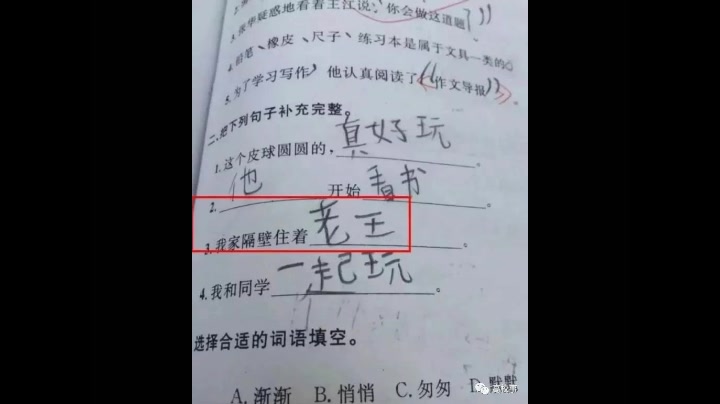 3.张华疑惑地看着王江说:你会做这道题?”
4.铅笔、橡皮、尺子、练习本是属于文具一类的。
5.为了学习写作,他认真阅读了《作文导报》。
二、把下列句子补充完整。
1.这个皮球圆圆的,真好玩。
2.他开始看书。
3.我家隔壁住着老王。
4.我和同学一起玩。
选择合适的词语填空。
A.渐渐 B.悄悄 C.匆匆 D.